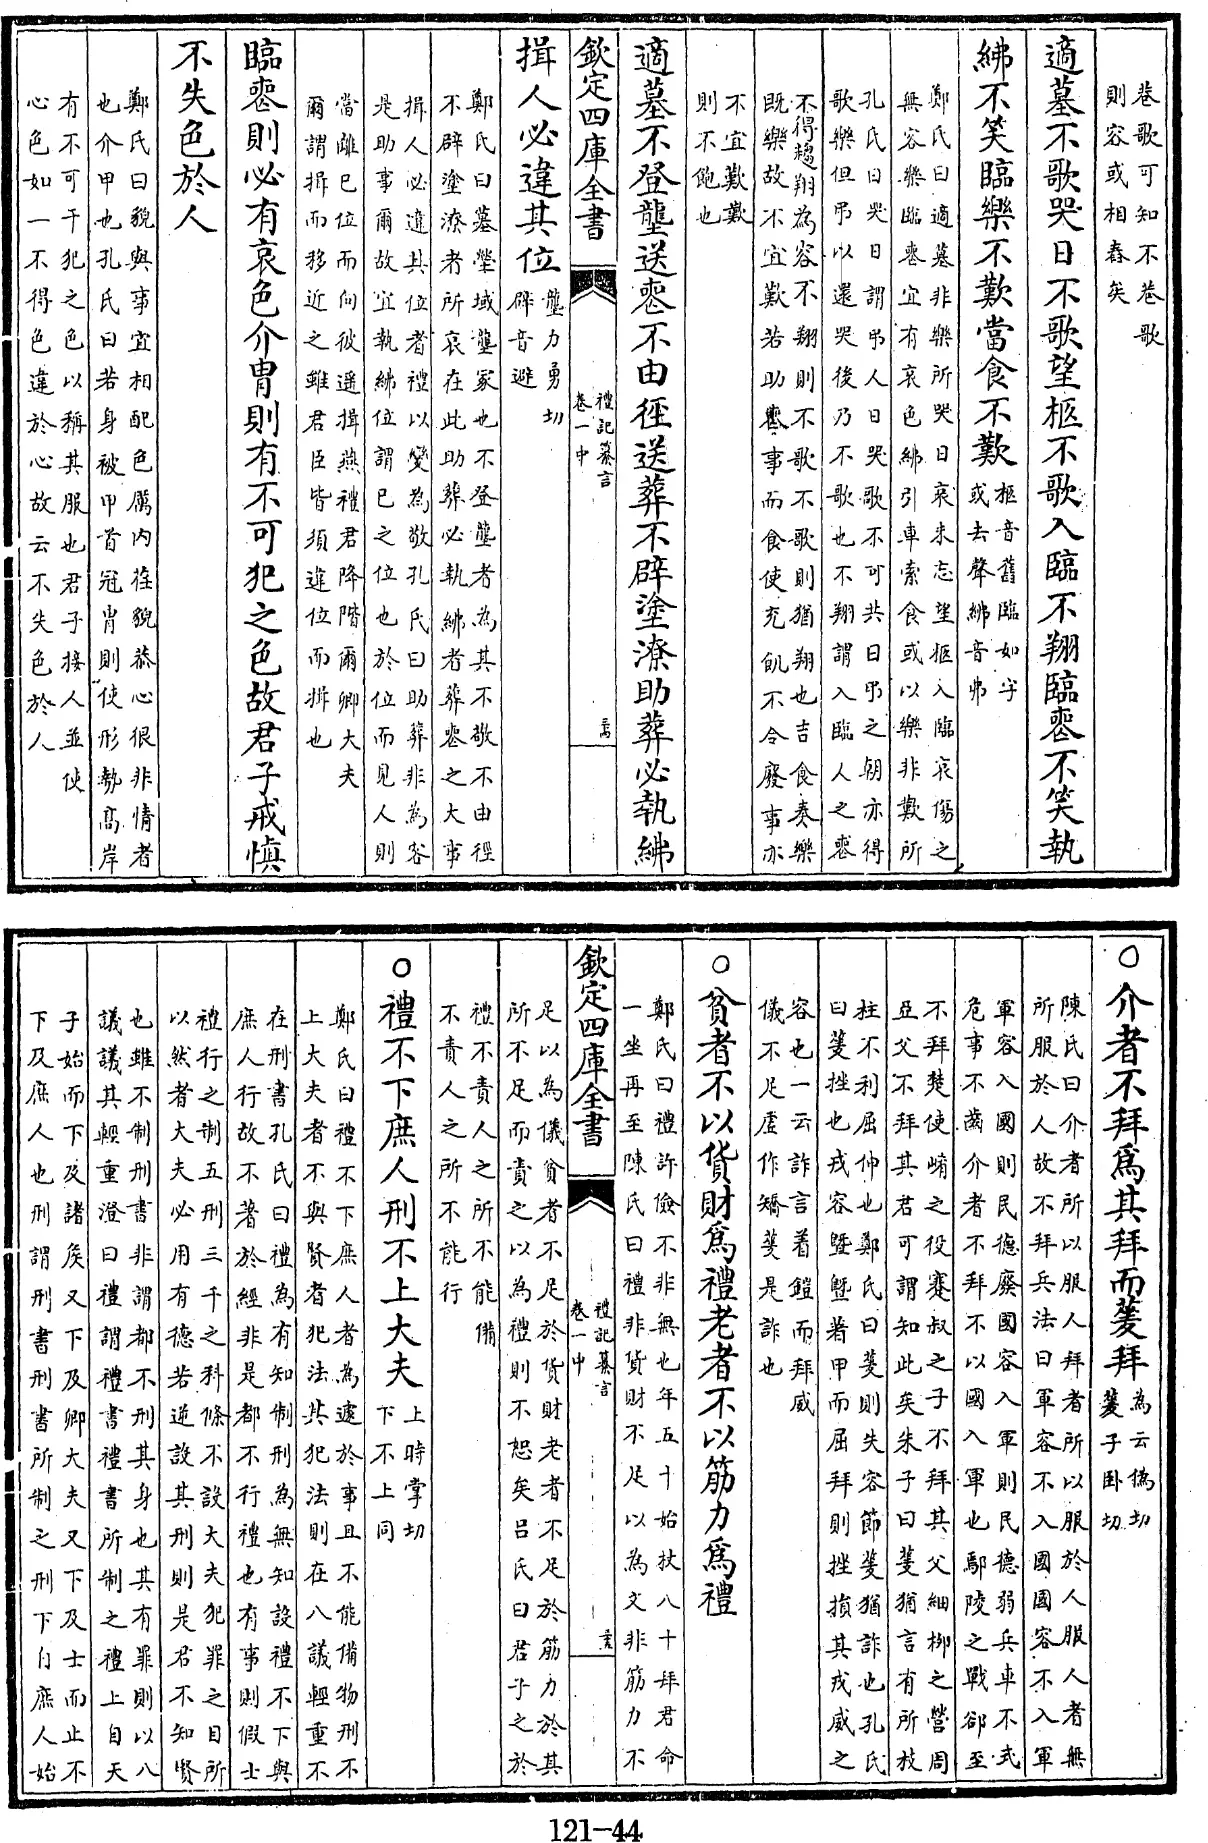 巷歌可知不巷歌
則容或相舂矣
適墓不歌哭日不歌望柩不歌入臨不翔臨喪不笑執
紼不笑臨樂不歎當食不歎
柩音舊臨如字
或去聲紼音弗
鄭氏曰適墓非樂所哭日哀未忘望柩入臨哀傷之
無容樂臨喪宜有哀色紼引車索食或以樂非歎所
孔氏曰哭日謂弔人日哭歌不可共日弔之朝亦得
歌樂但弔以還哭後乃不歌也不翔謂入臨人之喪
不得趨翔為容不翔則不歌不歌則猶翔也吉食奏樂
既樂故不宜歎若助喪事而食使充飢不合廢事亦
不宜歎歎
則不飽也
適墓不登壟送喪不由徑送葬不辟塗潦助葬必執紼
欽定四庫全書
禮記纂言
卷一中
揖人必違其位
壟力勇切
辟音避
鄭氏曰墓塋域壟冢也不登壟者為其不敬不由徑
不辟塗潦者所哀在此助葬必執紼者葬喪之大事
揖人必違其位者禮以變為敬孔氏曰助葬非為客
是助事爾故宜執紼位謂已之位也於位而見人則
當離已位而向彼遥揖燕禮君降階爾卿大夫
爾謂揖而移近之雖君臣皆須違位而揖也
臨喪則必有哀色介胄則有不可犯之色故君子戒慎
不失色於人
鄭氏曰貌與事宜相配色厲内荏貌恭心很非情者
也介甲也孔氏曰若身被甲首冠胄則使形勢髙岸
有不可干犯之色以稱其服也君子接人並使
心色如一不得色違於心故云不失色於人
○介者不拜為其拜而蓌拜
為云偽切
蓌子卧切
陳氏曰介者所以服人拜者所以服於人服人者無
所服於人故不拜兵法曰軍容不入國國容不入軍
軍容入國則民德廢國容入軍則民德弱兵車不式
危事不齒介者不拜不以國入軍也鄢陵之戰郤至
不拜楚使崤之役蹇叔之子不拜其父細栁之營周
亞父不拜其君可謂知此矣朱子曰蓌猶言有所枝
柱不利屈伸也鄭氏曰蓌則失容節蓌猶詐也孔氏
曰蓌挫也戎容暨暨著甲而屈拜則挫損其戎威之
容也一云詐言著鎧而拜威
儀不足虛作矯蓌是詐也
○貧者不以貨財為禮老者不以筋力為禮
鄭氏曰禮許儉不非無也年五十始杖八十拜君命
一坐再至陳氏曰禮非貨財不足以為文非筋力不
欽定四庫全書
禮記纂言
卷一中
足以為儀貧者不足於貨財老者不足於筋力於其
所不足而責之以為禮則不恕矣呂氏曰君子之於
禮不責人之所不能備
不責人之所不能行
○禮不下庶人刑不上大夫
上時掌切
下不上同
鄭氏曰禮不下庶人者為遽於事且不能備物刑不
上大夫者不與賢者犯法其犯法則在八議輕重不
在刑書孔氏曰禮為有知制刑為無知設禮不下與
庶人行故不著於經非是都不行禮也有事則假士
禮行之制五刑三千之科條不設大夫犯罪之目所
以然者大夫必用有德若逆設其刑則是君不知賢
也雖不制刑書非謂都不刑其身也其有罪則以八
議議其輕重澄曰禮謂禮書禮書所制之禮上自天
子始而下及諸侯又下及卿大夫又下及士而止不
下及庶人也刑謂刑書刑書所制之刑下自庶人始
121-44